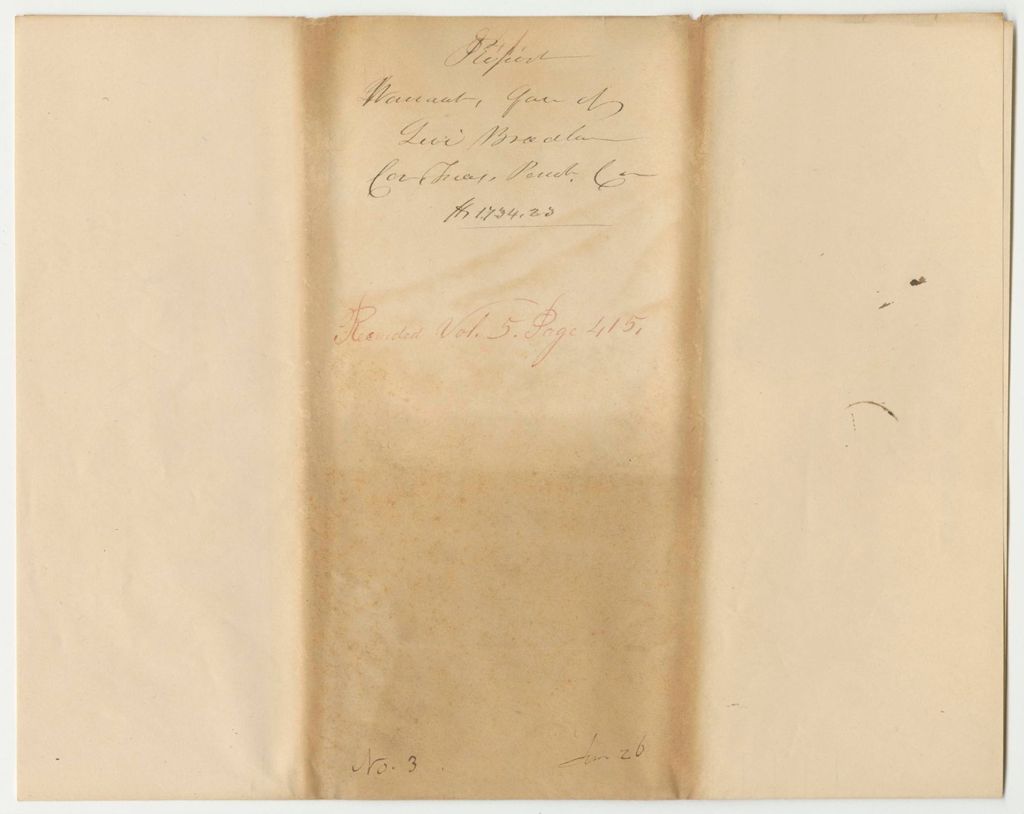 Report
Warrant, favr of
Levi Bradley
Co Treas. Penob. Co
$1734.23
Recorded Vol. 5. Page 415.
No. 3
Jan 26